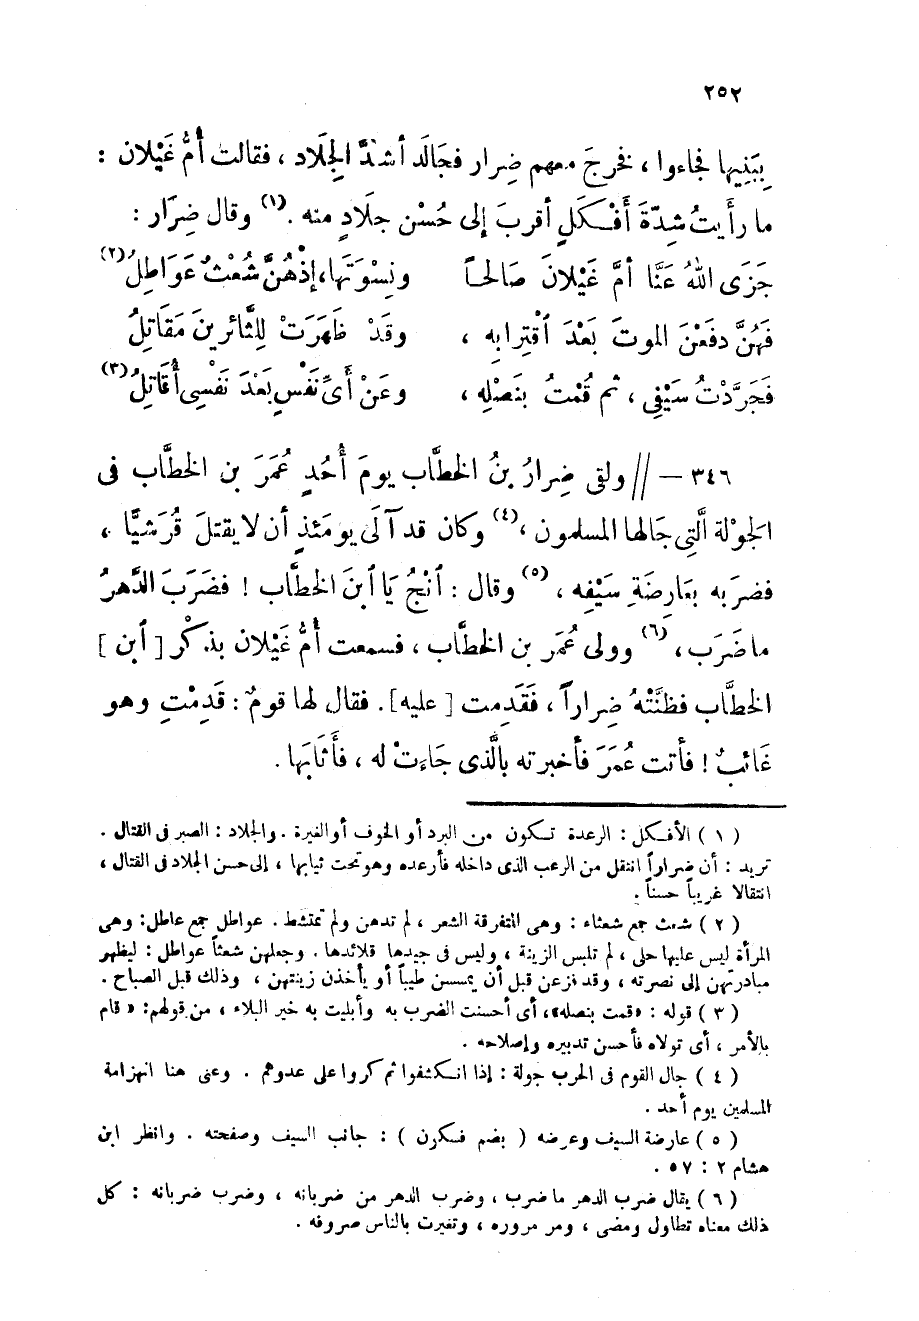 ٢٥٢
بِبَنِيها فجاءوا ، فخرجَ معهم ضِرار فجَالَد أشدَّ الجِلَاد ، فقالت أُمُّ غَيْلان :
ما رأَيتُ شِدّةَ أَفْكَلٍ أقربَ إلى حُسْن جِلَادٍ منه .(١) وقال ضِرَار :
جَزَى اللهُ عَنَّا أمَّ غَيْلانَ صَالحاً ونِسْوَتَها، إذْ هُنَّ شُعْثٌ عَوَاطِلُ(٢)
فَهُنَّ دفَعْنَ الموتَ بَعْدَ ٱقْتِرابِه ، وقَدْ ظَهَرَتْ لِلثَّائرينَ مَقَاتلُ
فَجَرَّدْتُ سَيْفِى ، ثم قُمْتُ بنَصْلِه ، وعَنْ أَىِّ نَفْسٍ بَعْدَ نَفْسِى أُقَاتِلُ(٣)
٣٤٦ – // ولقى ضِرارُ بنُ الخطَّاب يومَ أُحُدٍ عُمَرَ بن الخطَّاب فى
الجَوْلة الَّتِى جَالها المسلمون ،(٤) وكان قد آلَى يومَئذٍ أن لا يقتلَ قُرَشيًّا ،
فضرَبه بعَارِضَةِ سَيْفِه ، (٥) وقال : ٱنْجُ يَا ٱبنَ الخطَّاب ! فضَرَبَ الدَّهرُ
ما ضَرَب ، (٦) وولى عُمَر بن الخطَّاب ، فسمعت أمُّ غَيْلان بذِكْر [ ٱبن ]
الخطَّاب فظنَّتْهُ ضِراراً ، فَقَدِمت [ عليه ] . فقال لها قومٌ : قَدِمْتِ وهو
غَائبٌ ! فأتت عُمَرَ فأخبرته بالَّذى جَاءَتْ له ، فأَثَابَها .
( ١ ) الأفكل : الرعدة تكون من البرد أو الخوف أو الغيرة . والجلاد : الصبر فى القتال .
تريد : أن ضراراً انتقل من الرعب الذى داخله فأرعده وهو تحت ثيابها ، إلى حسن الجلاد فى القتال ،
انتقالا غريباً حسناً .
( ٢ ) شعث جمع شعثاء : وهى المتفرقة الشعر ، لم تدهن ولم تمتشط . عواطل جمع عاطل : وهى
المرأة ليس عليها حلى ، لم تلبس الزينة ، وليس فى جيدها قلائدها . وجعلهن شعثاً عواطل : ليظهر
مبادرتهن إلى نصرته ، وقد فزعن قبل أن يمسسن طيباً أو يأخذن زينتهن ، وذلك قبل الصباح .
( ٣ ) قوله : « قمت بنصله » ، أى أحسنت الضرب به وأبليت به خير البلاء ، من قولهم : « قام
بالأمر ، أى تولاه فأحسن تدبيره وإصلاحه .
( ٤ ) جال القوم فى الحرب جولة : إذا انكشفوا ثم كروا على عدوهم . وعنى هنا انهزامة
المسلمين يوم أحد .
( ٥ ) عارضة السيف وعرضه ( بضم فسكون ) : جانب السيف وصفحته . وانظر ابن
هشام ٢ : ٥٧ .
( ٦ ) يقال ضرب الدهر ما ضرب ، وضرب الدهر من ضربانه ، وضرب ضربانه : كل
ذلك معناه تطاول ومضى ، ومر مروره ، وتغيرت بالناس صروفه .